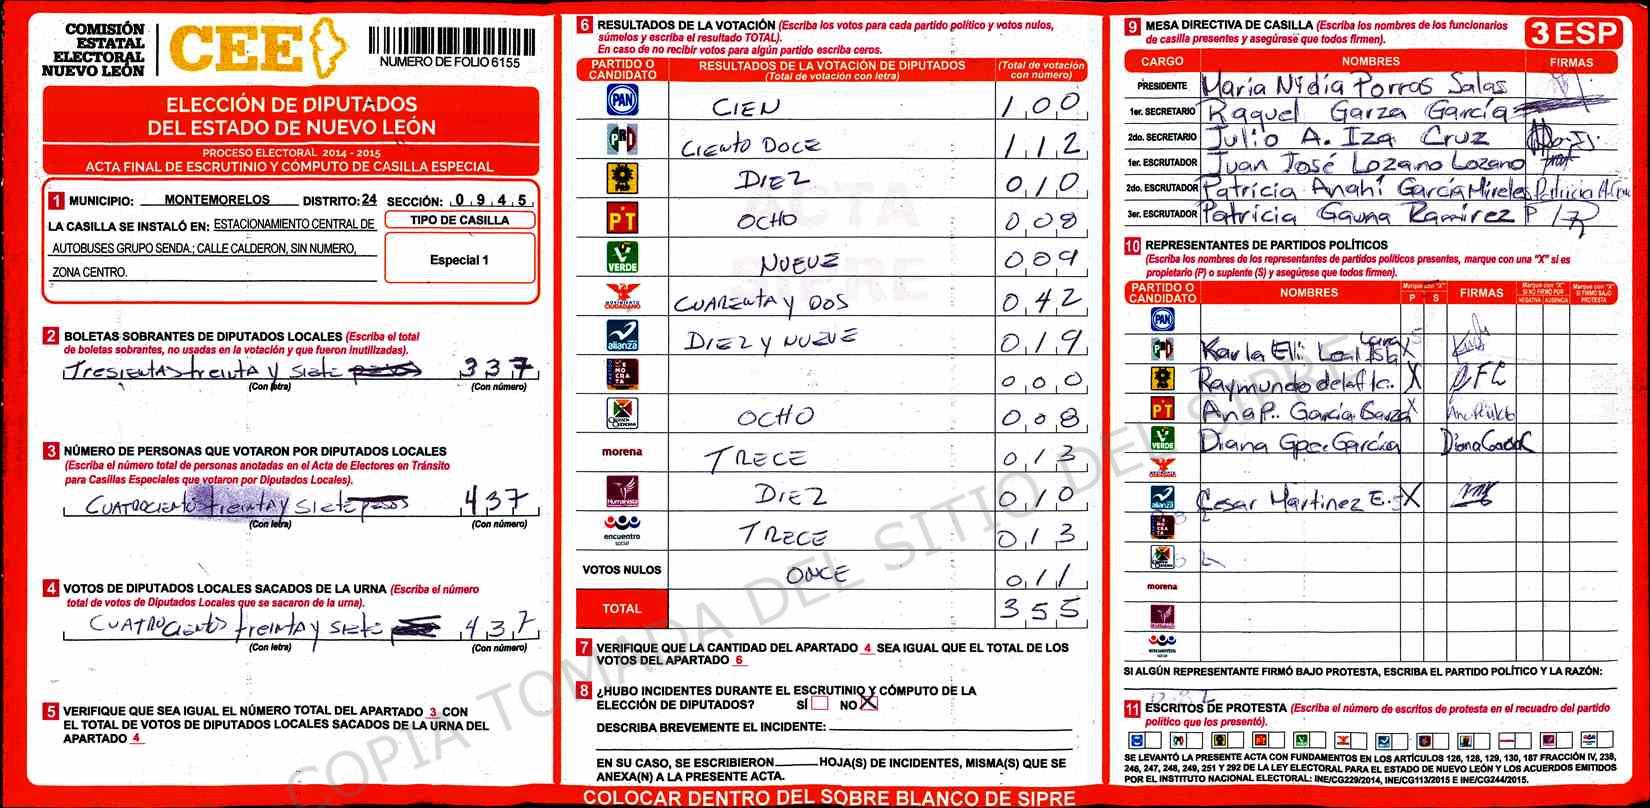 COMISIÓN
ESTATAL
ELECTORAL
NUEVO LEÓN
CEE
NUMERO DE FOLIO 6155
ELECCIÓN DE DIPUTADOS
DEL ESTADO DE NUEVO LEÓN
PROCESO ELECTORAL 2014 - 2015
ACTA FINAL DE ESCRUTINIO Y CÓMPUTO DE CASILLA ESPECIAL
1 MUNICIPIO: MONTEMORELOS DISTRITO: 24 SECCIÓN: 0945
LA CASILLA SE INSTALÓ EN: ESTACIONAMIENTO CENTRAL DE
AUTOBUSES GRUPO SENDA.; CALLE CALDERON, SIN NUMERO,
ZONA CENTRO.
TIPO DE CASILLA
Especial 1
2 BOLETAS SOBRANTES DE DIPUTADOS LOCALES (Escriba el total
de boletas sobrantes, no usadas en la votación y que fueron inutilizadas).
Tresientas treinta y siete 337
(Con letra) (Con número)
3 NÚMERO DE PERSONAS QUE VOTARON POR DIPUTADOS LOCALES
(Escriba el número total de personas anotadas en el Acta de Electores en Tránsito
para Casillas Especiales que votaron por Diputados Locales).
CUATROCIENTOS treinta y siete 437
(Con letra) (Con número)
4 VOTOS DE DIPUTADOS LOCALES SACADOS DE LA URNA (Escriba el número
total de votos de Diputados Locales que se sacaron de la urna).
CUATROCIENTOS treinta y siete 437
(Con letra) (Con número)
5 VERIFIQUE QUE SEA IGUAL EL NÚMERO TOTAL DEL APARTADO 3 CON
EL TOTAL DE VOTOS DE DIPUTADOS LOCALES SACADOS DE LA URNA DEL
APARTADO 4
6 RESULTADOS DE LA VOTACIÓN (Escriba los votos para cada partido político y votos nulos,
súmelos y escriba el resultado TOTAL).
En caso de no recibir votos para algún partido escriba ceros.
PARTIDO O CANDIDATO RESULTADOS DE LA VOTACIÓN DE DIPUTADOS (Total de votación con letra) (Total de votación con número)
PAN CIEN 100
PRI CIENTO DOCE 112
PRD DIEZ 010
PT OCHO 008
VERDE NUEVE 009
MOVIMIENTO CIUDADANO CUARENTA Y DOS 042
alianza DIEZ Y NUEVE 019
DEMOCRATA 000
CRUZADA CIUDADANA OCHO 008
morena TRECE 013
Humanista DIEZ 010
encuentro social TRECE 013
VOTOS NULOS ONCE 011
TOTAL 355
7 VERIFIQUE QUE LA CANTIDAD DEL APARTADO 4 SEA IGUAL QUE EL TOTAL DE LOS
VOTOS DEL APARTADO 6
8 ¿HUBO INCIDENTES DURANTE EL ESCRUTINIO Y CÓMPUTO DE LA
ELECCIÓN DE DIPUTADOS? SÍ NO X
DESCRIBA BREVEMENTE EL INCIDENTE:
EN SU CASO, SE ESCRIBIERON HOJA(S) DE INCIDENTES, MISMA(S) QUE SE
ANEXA(N) A LA PRESENTE ACTA.
COLOCAR DENTRO DEL SOBRE BLANCO DE SIPRE
9 MESA DIRECTIVA DE CASILLA (Escriba los nombres de los funcionarios
de casilla presentes y asegúrese que todos firmen).
3 ESP
CARGO NOMBRES FIRMAS
PRESIDENTE María Nydia Porras Salas
1er. SECRETARIO Raquel Garza García
2do. SECRETARIO Julio A. Iza Cruz
1er. ESCRUTADOR Juan José Lozano Lozano
2do. ESCRUTADOR Patricia Anahí García Mireles
3er. ESCRUTADOR Patricia Gauna Ramirez
10 REPRESENTANTES DE PARTIDOS POLÍTICOS
(Escriba los nombres de los representantes de partidos políticos presentes, marque con una "X" si es
propietario (P) o suplente (S) y asegúrese que todos firmen).
PARTIDO O CANDIDATO NOMBRES Marque con "X" P S FIRMAS Marque con "X" SI NO FIRMO POR NEGATIVA AUSENCIA Marque con "X" SI FIRMO BAJO PROTESTA
PAN
PRI Karla Eli Leal X
PRD Raymundo X
PT Ana P. García Garza X
VERDE Diana Gpe. García Diana
alianza Cesar Martinez E. X
morena
Humanista
encuentro social
SI ALGÚN REPRESENTANTE FIRMÓ BAJO PROTESTA, ESCRIBA EL PARTIDO POLÍTICO Y LA RAZÓN:
11 ESCRITOS DE PROTESTA (Escriba el número de escritos de protesta en el recuadro del partido
político que los presentó).
SE LEVANTÓ LA PRESENTE ACTA CON FUNDAMENTOS EN LOS ARTÍCULOS 126, 128, 129, 130, 187 FRACCIÓN IV, 238,
246, 247, 248, 249, 251 Y 292 DE LA LEY ELECTORAL PARA EL ESTADO DE NUEVO LEÓN Y LOS ACUERDOS EMITIDOS
POR EL INSTITUTO NACIONAL ELECTORAL: INE/CG229/2014, INE/CG113/2015 E INE/CG244/2015.
ACTA
SIPRE
COPIA TOMADA DEL SITIO DEL SIPRE